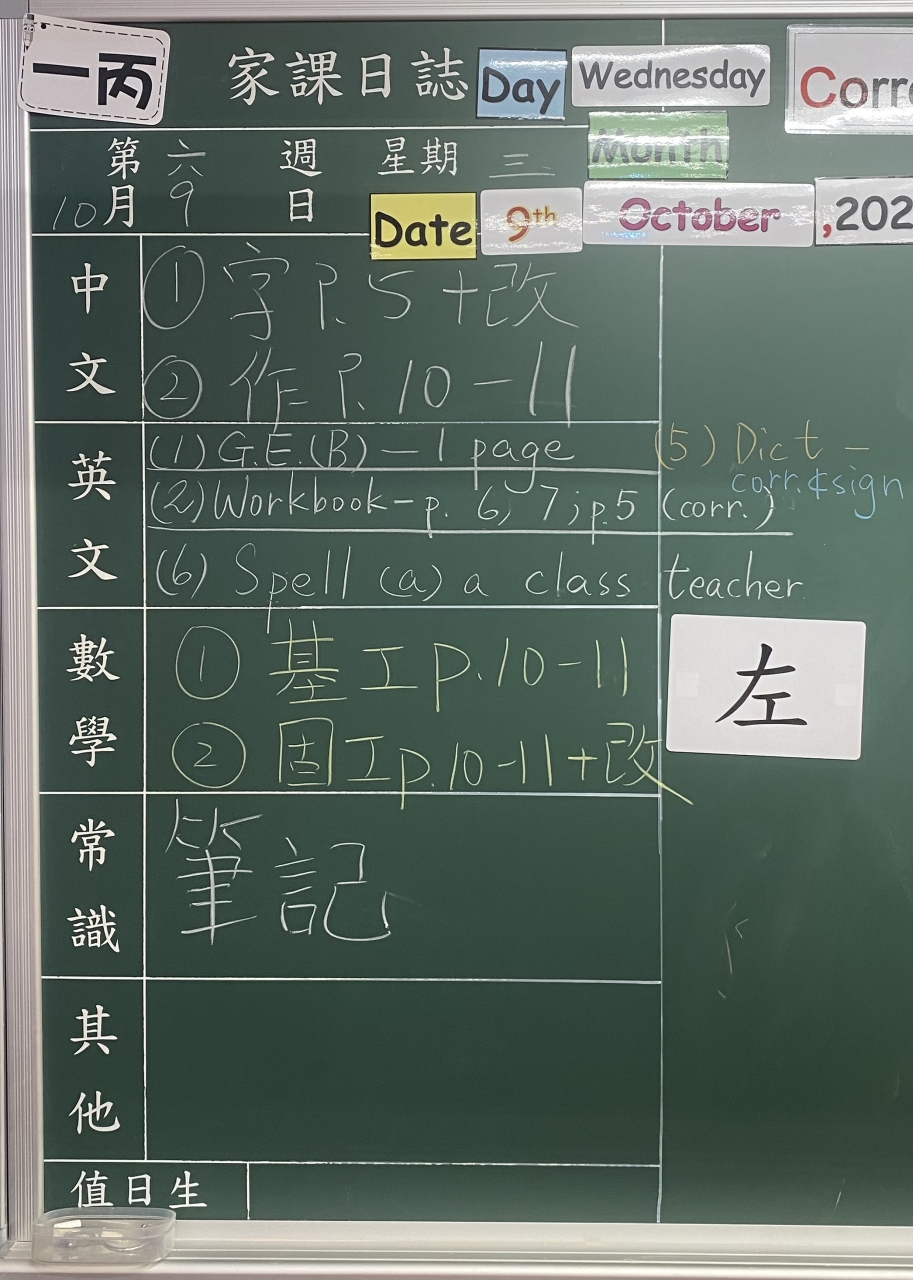 一丙 家課日誌 Day Wednesday Corr
第六週 星期三 Month
10月9日 Date 9th October ,202
中文
① 字 P. 5 + 改
② 作 P. 10 - 11
英文
(1) G.E.(B) — 1 page (5) Dict —
corr. & sign
(2) Workbook - p. 6, 7; p.5 (corr.)
(6) Spell (a) a class teacher
數學
① 基工 p.10-11
② 固工 p.10-11+改
左
常識
筆記
其他
值日生